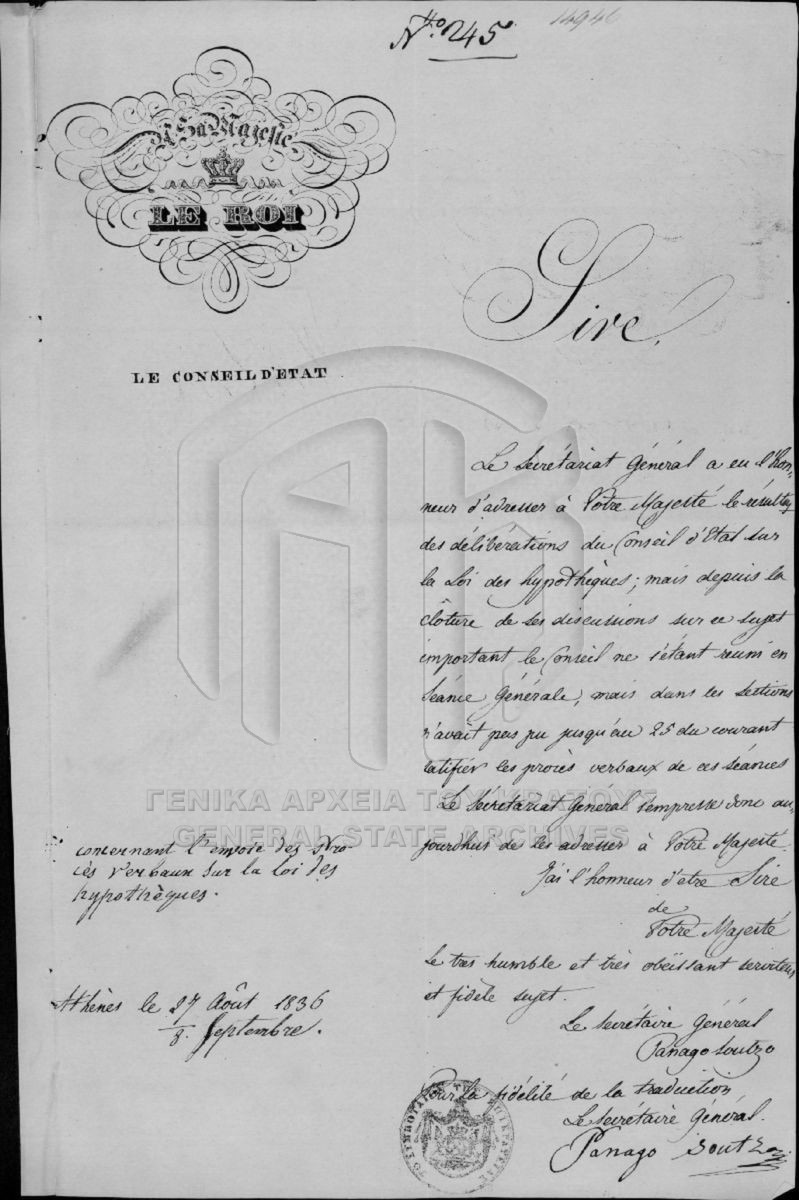 Nro. 245
14946
A Sa Majesté
LE ROI
LE CONSEIL D'ETAT
Sire,
Le Secrétariat Général a eu l'hon,
neur d'adresser à Votre Majesté le résultat
des délibérations du Conseil d'Etat sur
la Loi des hypothèques; mais depuis la
clôture de ses discussions sur ce sujet
important le Conseil ne s'étant réuni en
Séance Générale, mais dans les sections
n'avait pas pu jusqu'au 25 du courant
ratifier les procès verbaux de ces séances
Le Sécrétariat Général s'empresse donc au,
jourd'hui de les adresser à Votre Majesté.
J'ai l'honneur d'etre Sire
de
Votre Majesté
Le très humble et très obéissant serviteur
et fidèle sujet.
Le secrétaire Général
Panago Soutzo
Pour la fidélité de la traduction
Le Secrétaire Général.
Panago Soutzo
concernant l'envoie des Pro-
cès Verbaux sur la loi des
hypothèques.
Athènes le 27 Août 1836
8. Septembre.
ΓΕΝΙΚΑ ΑΡΧΕΙΑ ΤΟΥ ΚΡΑΤΟΥΣ
GENERAL STATE ARCHIVES
ΤΟ ΣΥΜΒΟΥΛΙΟΝ ΤΗΣ ΕΠΙΚΡΑΤΕΙΑΣ